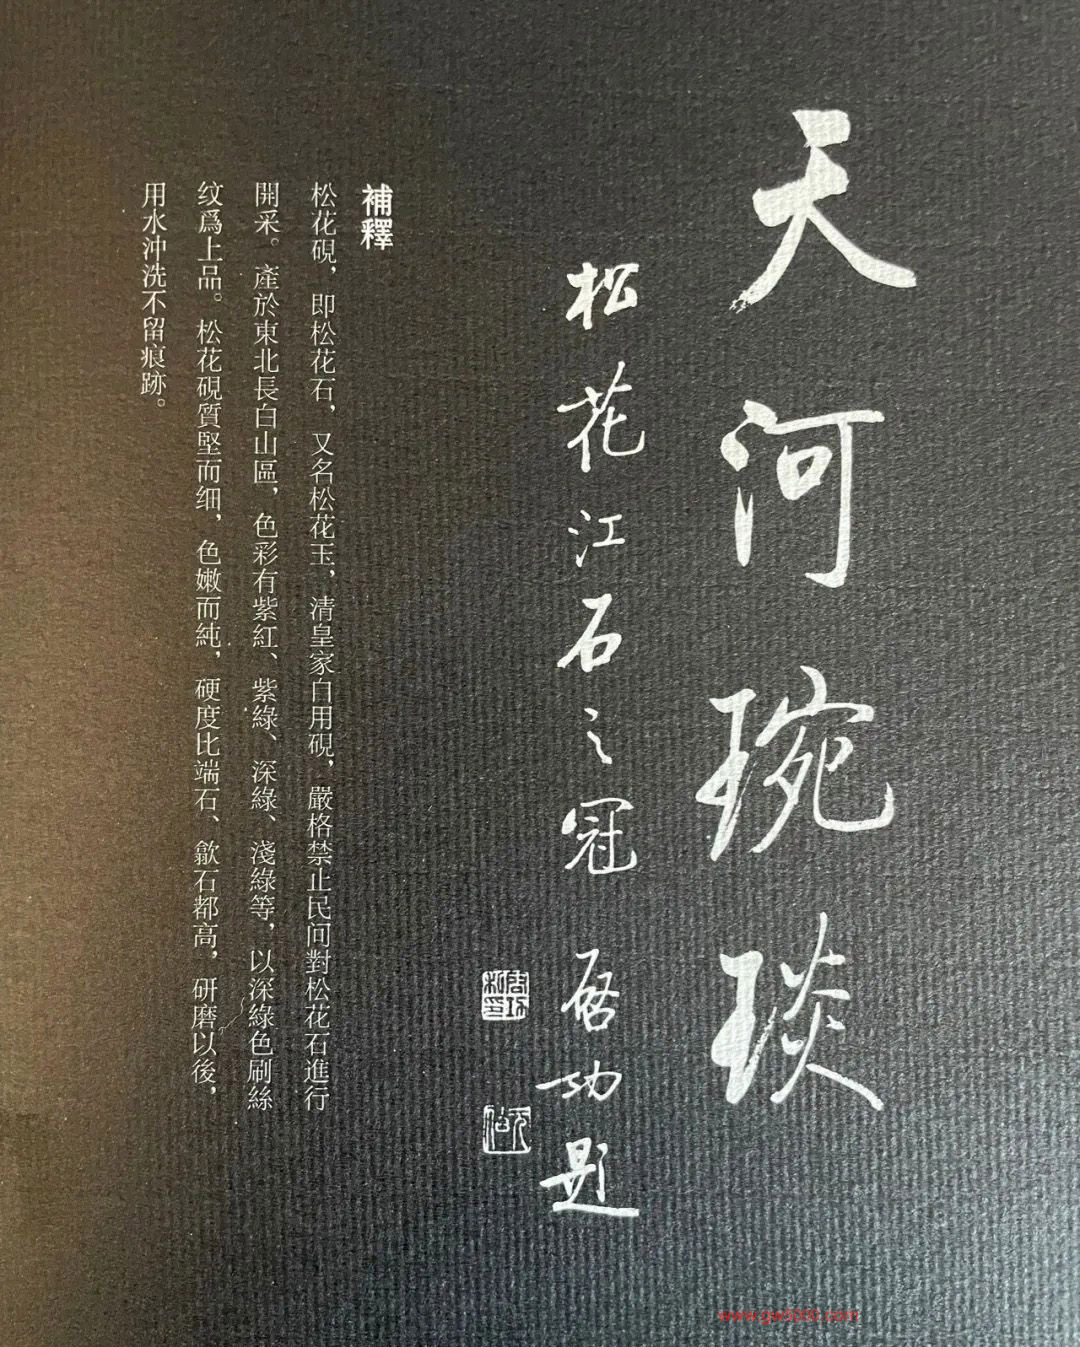 天河琬琰
松花江石之冠 啓功題
補釋
松花硯，即松花石，又名松花玉，清皇家自用硯，嚴格禁止民间對松花石進行
開采。產於東北長白山區，色彩有紫紅、紫綠、深綠、淺綠等，以深綠色刷絲
纹爲上品。松花硯質堅而细，色嫩而純，硬度比端石、歙石都高，研磨以後，
用水沖洗不留痕跡。
www.gw5090.com